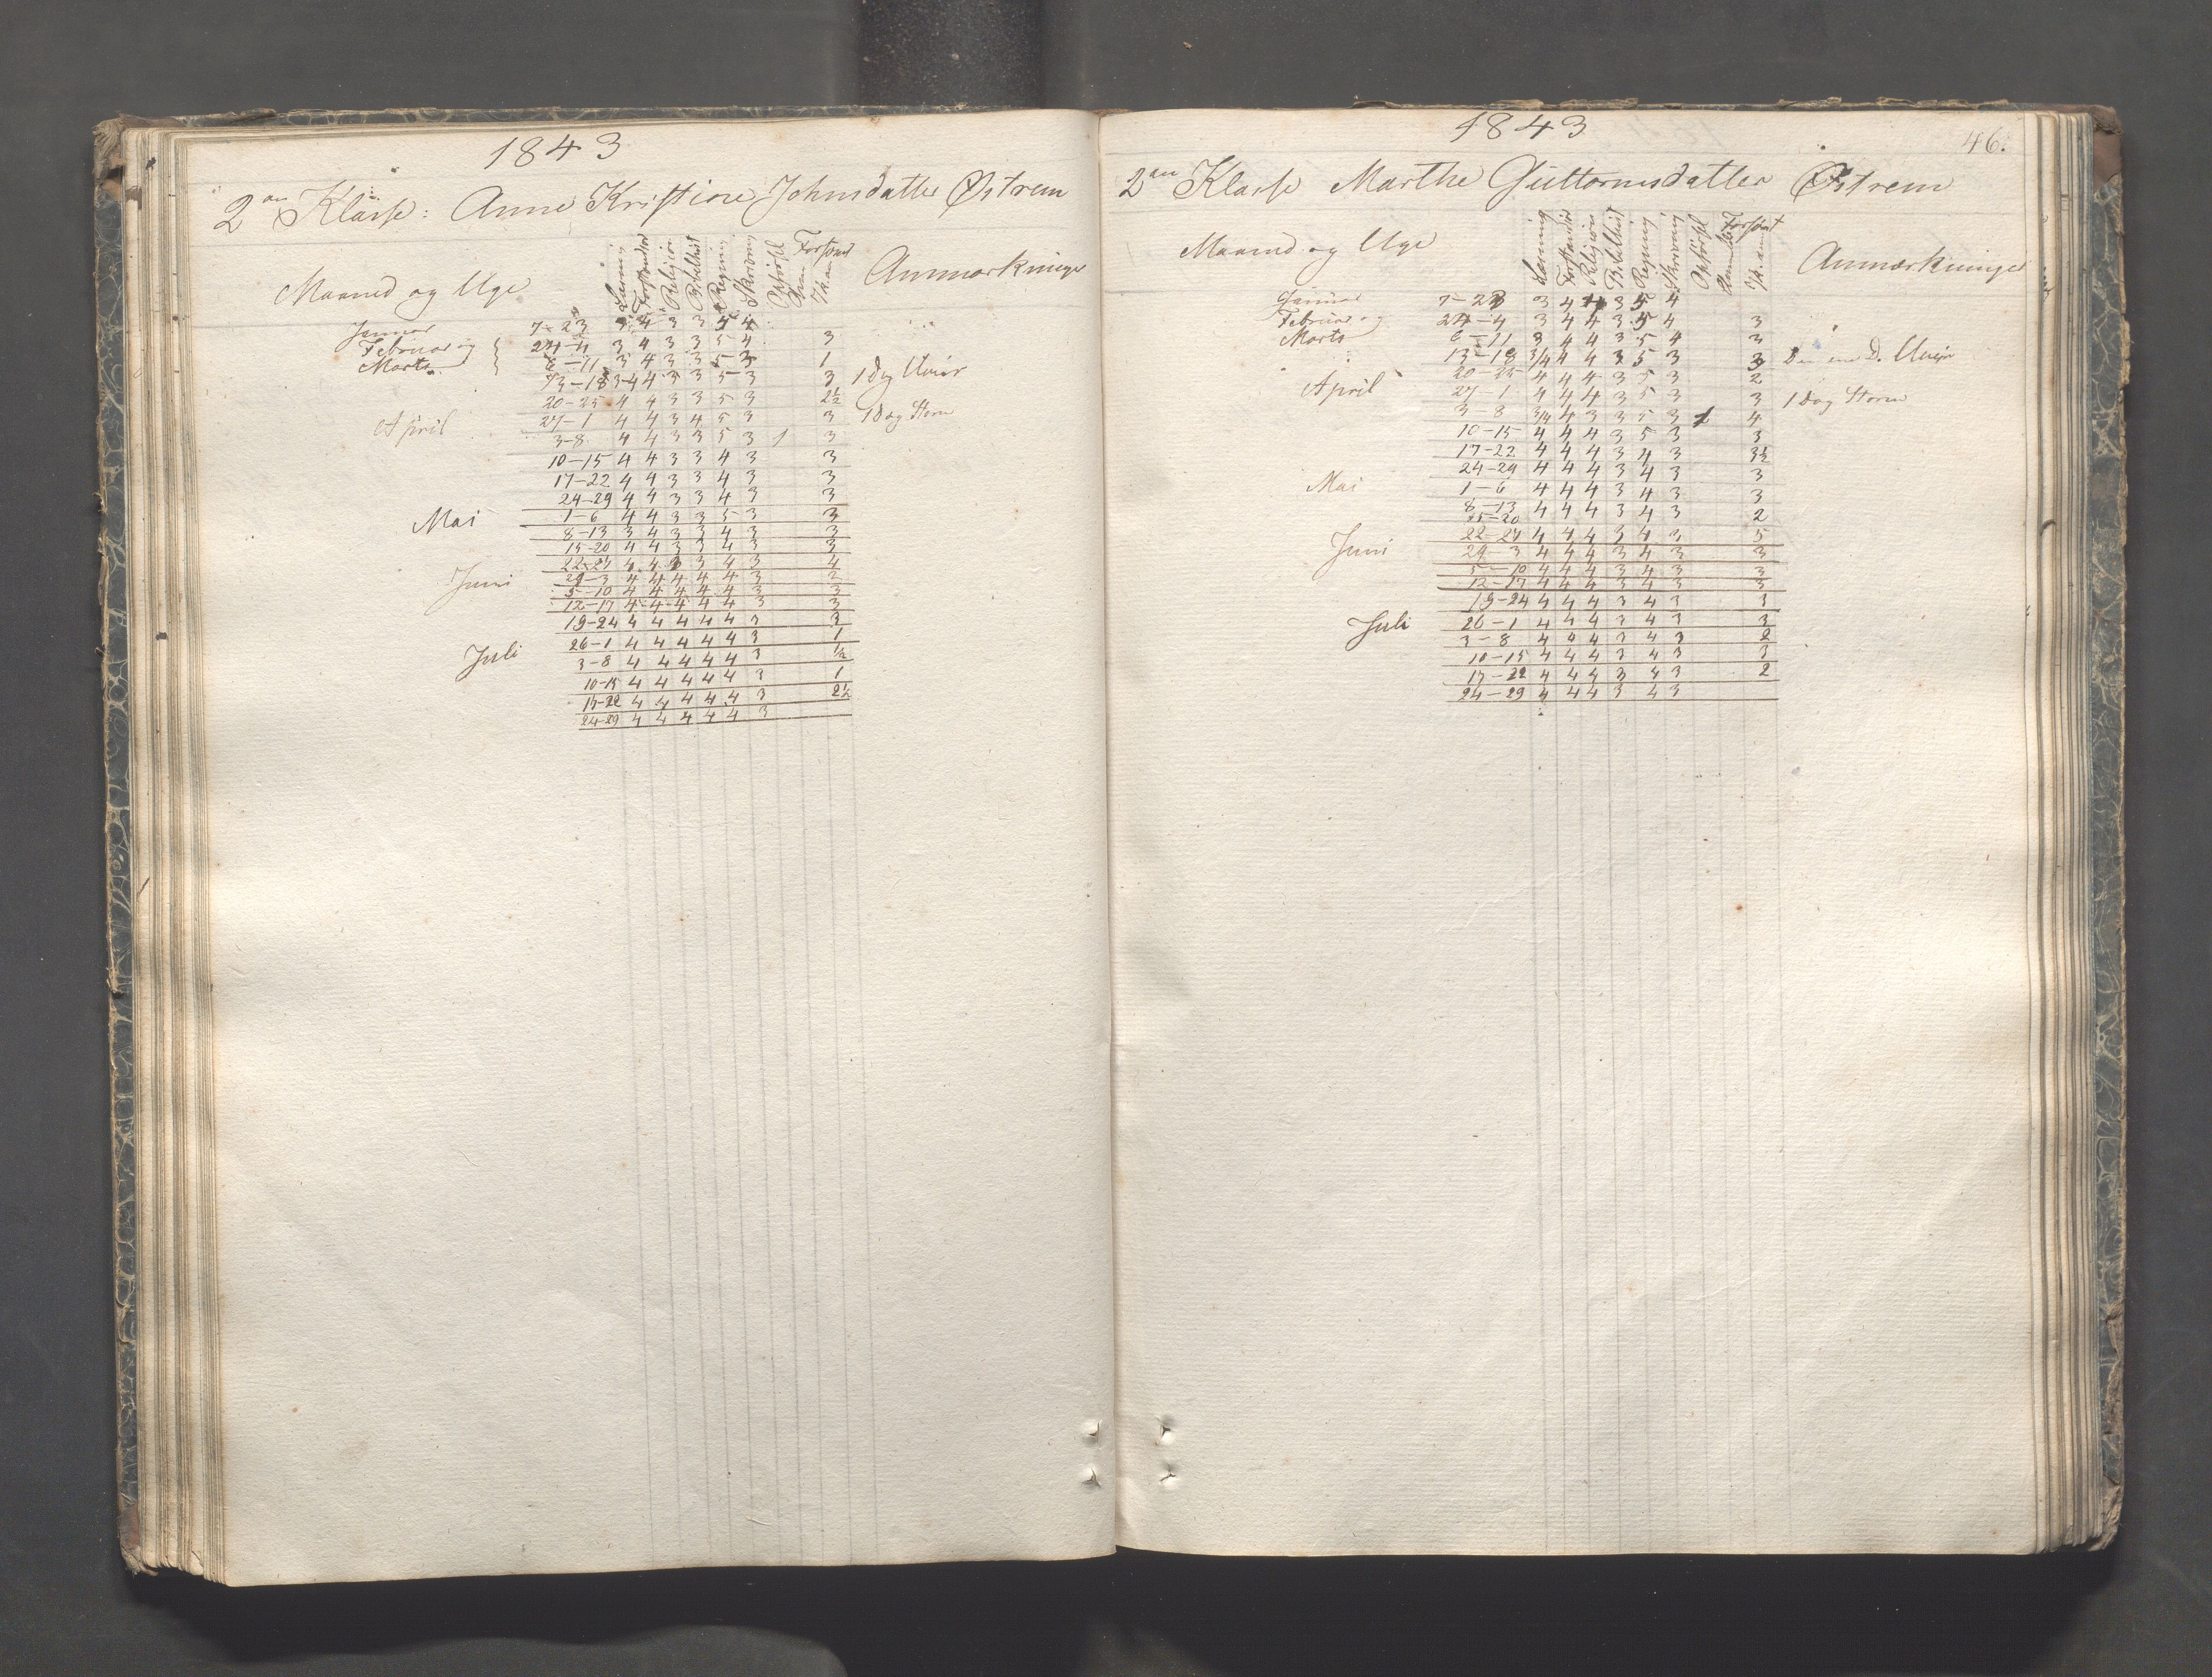 1843
2en Klasse: Anne Kristine Johnsdatter Østrem
Maaned og Uge Læsning Forstander Religion Bibelhist Regning Skrivning Opførsel Forsømt Anmærkninger
Januar 7-23 3 4 3 3 5 4
Februar og 24-4 3 4 3 3 5 4 3
Marts 6-11 3 4 3 3 5 3 1
13-18 3-4 4 3 3 5 3 3 1 Dag Uveir
20-25 4 4 3 3 5 3 2½
April 27-1 4 4 3 4 5 3 3 1 Dag Storm
3-8 4 4 3 3 5 3 1 3
10-15 4 4 3 3 4 3 3
17-22 4 4 3 3 4 3 3
24-29 4 4 3 3 4 3 3
Mai 1-6 4 4 3 3 5 3 3
8-13 3 4 3 3 4 3 3
15-20 4 4 3 3 4 3 3
22-27 4 4 3 3 4 3 4
Juni 29-3 4 4 4 4 4 3 2
5-10 4 4 4 4 4 3 3
12-17 4 4 4 4 4 3 3
19-24 4 4 4 4 4 3 3
26-1 4 4 4 4 4 3 1
Juli 3-8 4 4 4 4 4 3 1½
10-15 4 4 4 4 4 3 1
17-22 4 4 4 4 4 3 2½
24-29 4 4 4 4 4 3
1843
46.
2en Klasse Marthe Guttormsdatter Østrem
Maaned og Uge Læsning Forstander Religion Bibelhist Regning Skrivning Opførsel Forsømt Anmærkninger
Januar 7-23 3 4 4 3 5 4
Februar og 24-4 3 4 4 3 5 4 3
Marts 6-11 3 4 4 3 5 4 3
13-18 3/4 4 4 3 5 3 3 Den ene D. Uveir
20-25 4 4 4 3 5 3 2
April 27-1 4 4 4 3 5 3 3 1 Dag Storm
3-8 3/4 4 3 3 5 3 1 4
10-15 4 4 4 3 5 3 3
17-22 4 4 4 3 4 3 3½
24-29 4 4 4 3 4 3 3
Mai 1-6 4 4 4 3 4 3 3
8-13 4 4 4 3 4 3 2
15-20
22-27 4 4 4 3 4 3 5
Juni 29-3 4 4 4 3 4 3 3
5-10 4 4 4 3 4 3 3
12-17 4 4 4 3 4 3 3
19-24 4 4 4 3 4 3 3
Juli 26-1 4 4 4 3 4 3 3
3-8 4 4 4 3 4 3 2
10-15 4 4 4 3 4 3 3
17-22 4 4 4 3 4 3 2
24-29 4 4 4 3 4 3